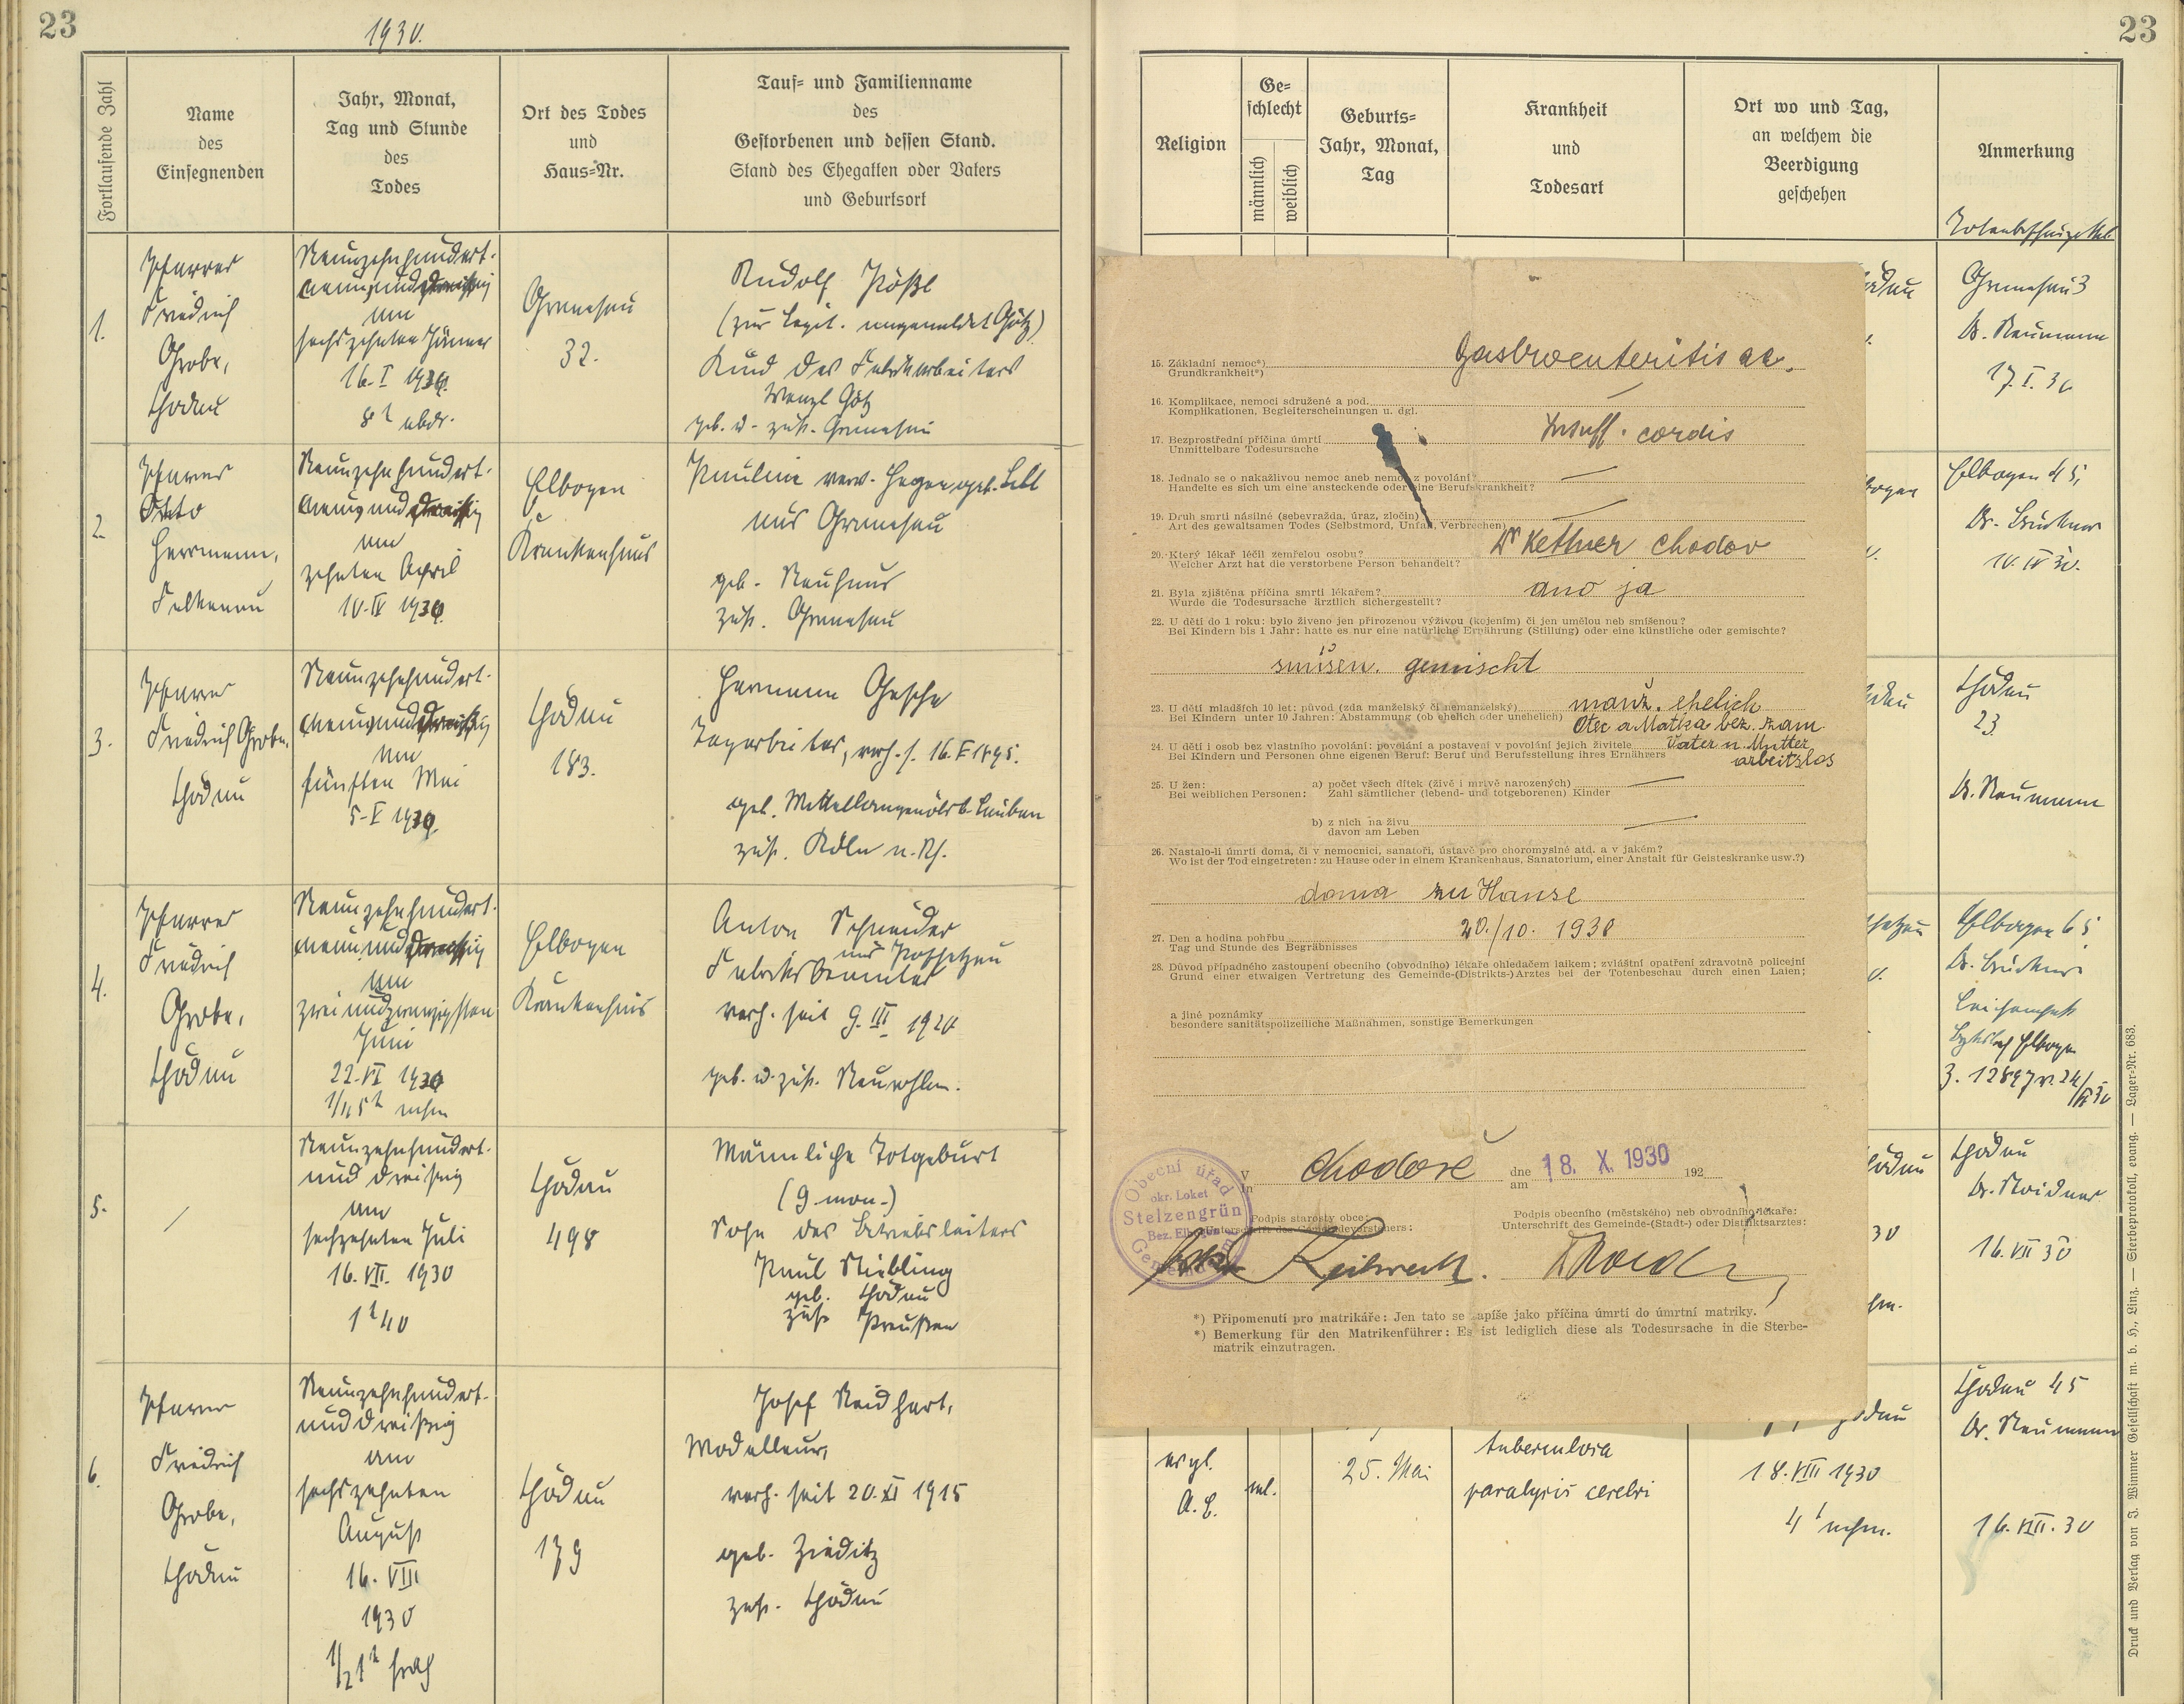 23
1930.
Fortlaufende Zahl
Name
des
Einsegnenden
Jahr, Monat,
Tag und Stunde
des
Todes
Ort des Todes
und
Haus-Nr.
Tauf- und Familienname
des
Gestorbenen und dessen Stand.
Stand des Ehegatten oder Vaters
und Geburtsort
1.
Pfarrer
Friedrich
Grobe,
Chodau
Neunzehnhundert-
am
sechszehnten Jänner
16. I 1930.
8h abds.
Granesau
32.
Rudolf Pößl
(zur Legit. angemeldet Götz)
Kind des Fabrikarbeiters
Wenzl Götz
geb. u. zust. Granesau
2.
Pfarrer
Otto
Herrmann,
Falkenau
Neunzehnhundert-
am
zehnten April
10. IV 1930.
Elbogen
Krankenhaus
Pauline verw. geb.
aus Granesau
geb. Neuhaus
zust. Granesau
3.
Pfarrer
Friedrich Grobe,
Chodau
Neunzehnhundert-
am
fünften Mai
5. V 1930.
Chodau
183.
Hermann
verh. s. 16. V 1895.
geb. Mittellangenöls b. Lauban
zust. Köln a. Rh.
4.
Pfarrer
Friedrich
Grobe,
Chodau
Neunzehnhundert-
am
zweiundzwanzigsten
Juni
22. VI 1930
nchm
Elbogen
Krankenhaus
Anton Schneider
aus Poschetzau
Fabriksbeamter
verh. seit 9. III 1920
geb. u. zust. Neurohlau.
5.
/
Neunzehnhundert-
und dreißig
am
sechzehnten Juli
16. VII. 1930
1h 40
Chodau
498
Männliche Totgeburt
(9. mon.)
Sohn des Betriebsleiters
Paul Stiebling
geb. Chodau
zust. Preußen
6.
Pfarrer
Friedrich
Grobe,
Chodau
Neunzehnhundert-
und dreißig
am
sechszehnten
August
16. VIII
1930
1/2 1h früh
Chodau
179
Josef Neidhart,
Modelleur,
verh. seit 20. XI 1915
geb. Zieditz
zust. Chodau
23
Religion
Ge-
schlecht
männlich
weiblich
Geburts-
Jahr, Monat,
Tag
Krankheit
und
Todesart
Ort wo und Tag,
an welchem die
Beerdigung
geschehen
Anmerkung
Granesau 3
Dr. Neumann
17. I. 30
Elbogen 45,
10. IV 30.
Chodau
23.
Dr. Neumann
Elbogen 65
Chodau
16. VII 30
Chodau 45
Dr. Neumann
16. VIII. 30
15. Základní nemoc*)
Grundkrankheit*)
Gastroenteritis ac.
16. Komplikace, nemoci sdružené a pod.
Komplikationen, Begleiterscheinungen u. dgl.
17. Bezprostřední příčina úmrtí
Unmittelbare Todesursache
Insuff. cordis
18. Jednalo se o nakažlivou nemoc aneb nemoc z povolání?
Handelte es sich um eine ansteckende oder eine Berufskrankheit?
19. Druh smrti násilné (sebevražda, úraz, zločin)
Art des gewaltsamen Todes (Selbstmord, Unfall, Verbrechen)
20. Který lékař léčil zemřelou osobu?
Welcher Arzt hat die verstorbene Person behandelt?
Dr Kettner Chodov
21. Byla zjištěna příčina smrti lékařem?
Wurde die Todesursache ärztlich sichergestellt?
ano ja
22. U dětí do 1 roku: bylo živeno jen přirozenou výživou (kojením) či jen umělou neb smíšenou?
Bei Kindern bis 1 Jahr: hatte es nur eine natürliche Ernährung (Stillung) oder eine künstliche oder gemischte?
smíšen. gemischt
23. U dětí mladších 10 let: původ (zda manželský či nemanželský)
Bei Kindern unter 10 Jahren: Abstammung (ob ehelich oder unehelich)
manž. ehelich
Otec a Matka bez. zam
24. U dětí i osob bez vlastního povolání: povolání a postavení v povolání jejich živitele
Bei Kindern und Personen ohne eigenen Beruf: Beruf und Berufsstellung ihres Ernährers
Vater u. Mutter
arbeitslos
25. U žen: a) počet všech dítek (živě i mrtvě narozených)
Bei weiblichen Personen: Zahl sämtlicher (lebend- und totgeborenen) Kinder
b) z nich na živu
davon am Leben
26. Nastalo-li úmrtí doma, či v nemocnici, sanatoři, ústavě pro choromyslné atd. a v jakém?
Wo ist der Tod eingetreten: zu Hause oder in einem Krankenhaus, Sanatorium, einer Anstalt für Geisteskranke usw.?)
doma zu Hause
27. Den a hodina pohřbu
Tag und Stunde des Begräbnisses
20./10. 1930
28. Důvod případného zastoupení obecního (obvodního) lékaře ohledačem laikem; zvláštní opatření zdravotně policejní
Grund einer etwaigen Vertretung des Gemeinde-(Distrikts-)Arztes bei der Totenbeschau durch einen Laien;
a jiné poznámky
besondere sanitätspolizeiliche Maßnahmen, sonstige Bemerkungen
V
In
Chodově
dne
am
18. X. 1930
192
Obecní úřad
okr. Loket
Stelzengrün
Bez. Elbogen
Gemeindeamt
Podpis starosty obce:
Unterschrift des Gemeindevorstehers:
Podpis obecního (městského) neb obvodního lékaře:
Unterschrift des Gemeinde-(Stadt-) oder Distriktsarztes:
*) Připomenutí pro matrikáře: Jen tato se zapíše jako příčina úmrtí do úmrtní matriky.
*) Bemerkung für den Matrikenführer: Es ist lediglich diese als Todesursache in die Sterbe-
matrik einzutragen.
evgl.
A. B.
ml.
25. Mai
tuberculosa
paralysis cerebri
18. VIII 1930
4h nchm.
Druck und Verlag von J. Wimmer Gesellschaft m. b. H., Linz. — Sterbeprotokoll, evang. — Lager-Nr. 683.